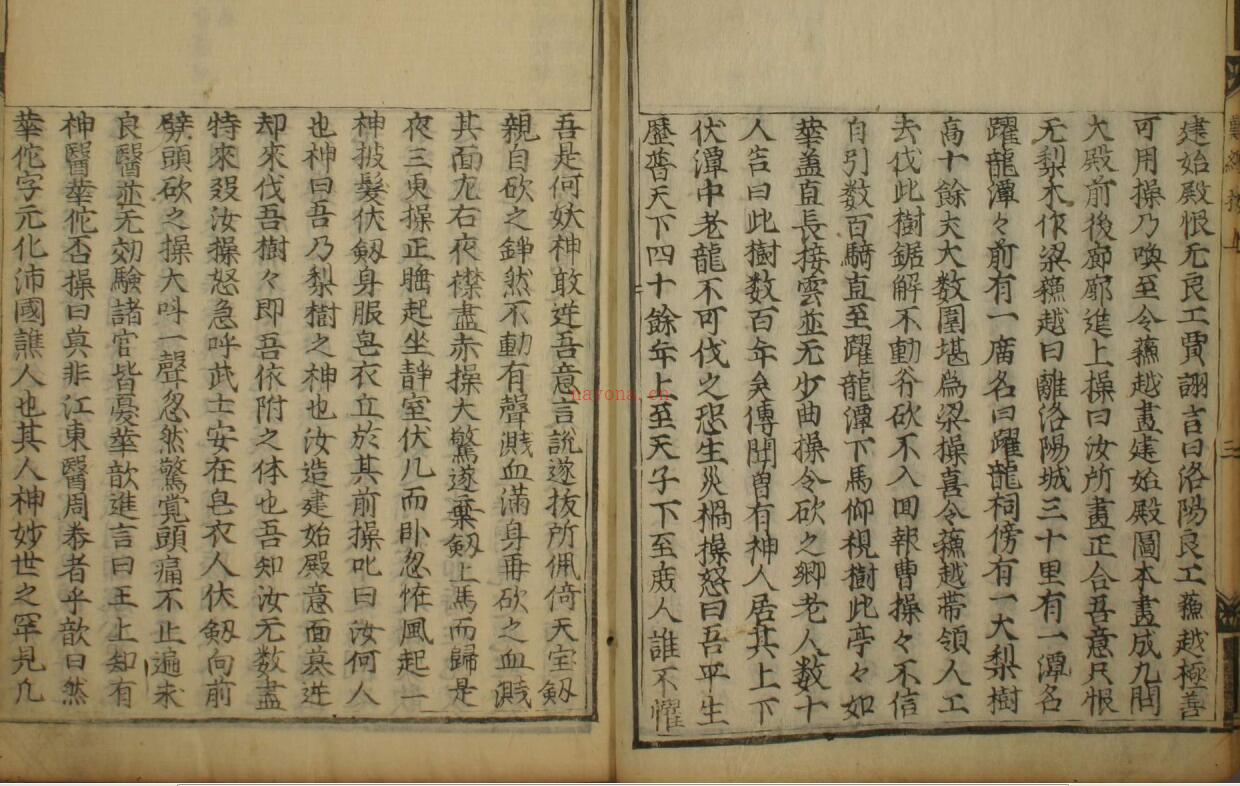 建始殿恨无良工賈詡言曰洛陽良工蘓越極善
可用操乃喚至令蘓越畫建始殿圖本畫成九間
大殿前後廊廊進上操曰汝所畫正合吾意只恨
无梨木作梁蘓越曰離洛陽城三十里有一潭名
躍龍潭々前有一廣名曰躍龍祠傍有一大梨樹
高十餘丈大数圍堪為梁操喜令蘓越帶領人工
去伐此樹鋸解不動斧砍不入回報曹操々不信
自引数百騎直至躍龍潭下馬仰視樹此亭々如
華盖直長接雲並无少曲操令砍之鄉老人数十
人告曰此樹数百年矣傳聞曽有神人居其上下
伏潭中老龍不可伐之恐生災禍操怒曰吾平生
歷普天下四十餘年上至天子下至庻人誰不懼
吾是何妖神敢逆吾意言說遂拔所佩倚天宝劔
親自砍之錚然不動有聲濺血滿身再砍之血濺
其面左右夜襟盡赤操大驚遂棄劔上馬而歸是
夜三更操正睡起坐静室伏几而卧忽恠風起一
神披髮伏劔身服皂衣立於其前操叱曰汝何人
也神曰吾乃梨樹之神也汝造建始殿意面墓逆
却來伐吾樹々即吾依附之体也吾知汝无数盡
特來殺汝操怒急呼武士安在皂衣人伏劔向前
劈頭砍之操大呌一聲忽然驚覚頭痛不止遍求
良醫並无効驗諸官皆憂華歆進言曰王上知有
神醫華佗否操曰莫非江東醫周泰者乎歆曰然
華佗字元化沛國譙人也其人神妙世之罕見凢
三
nayona.cn